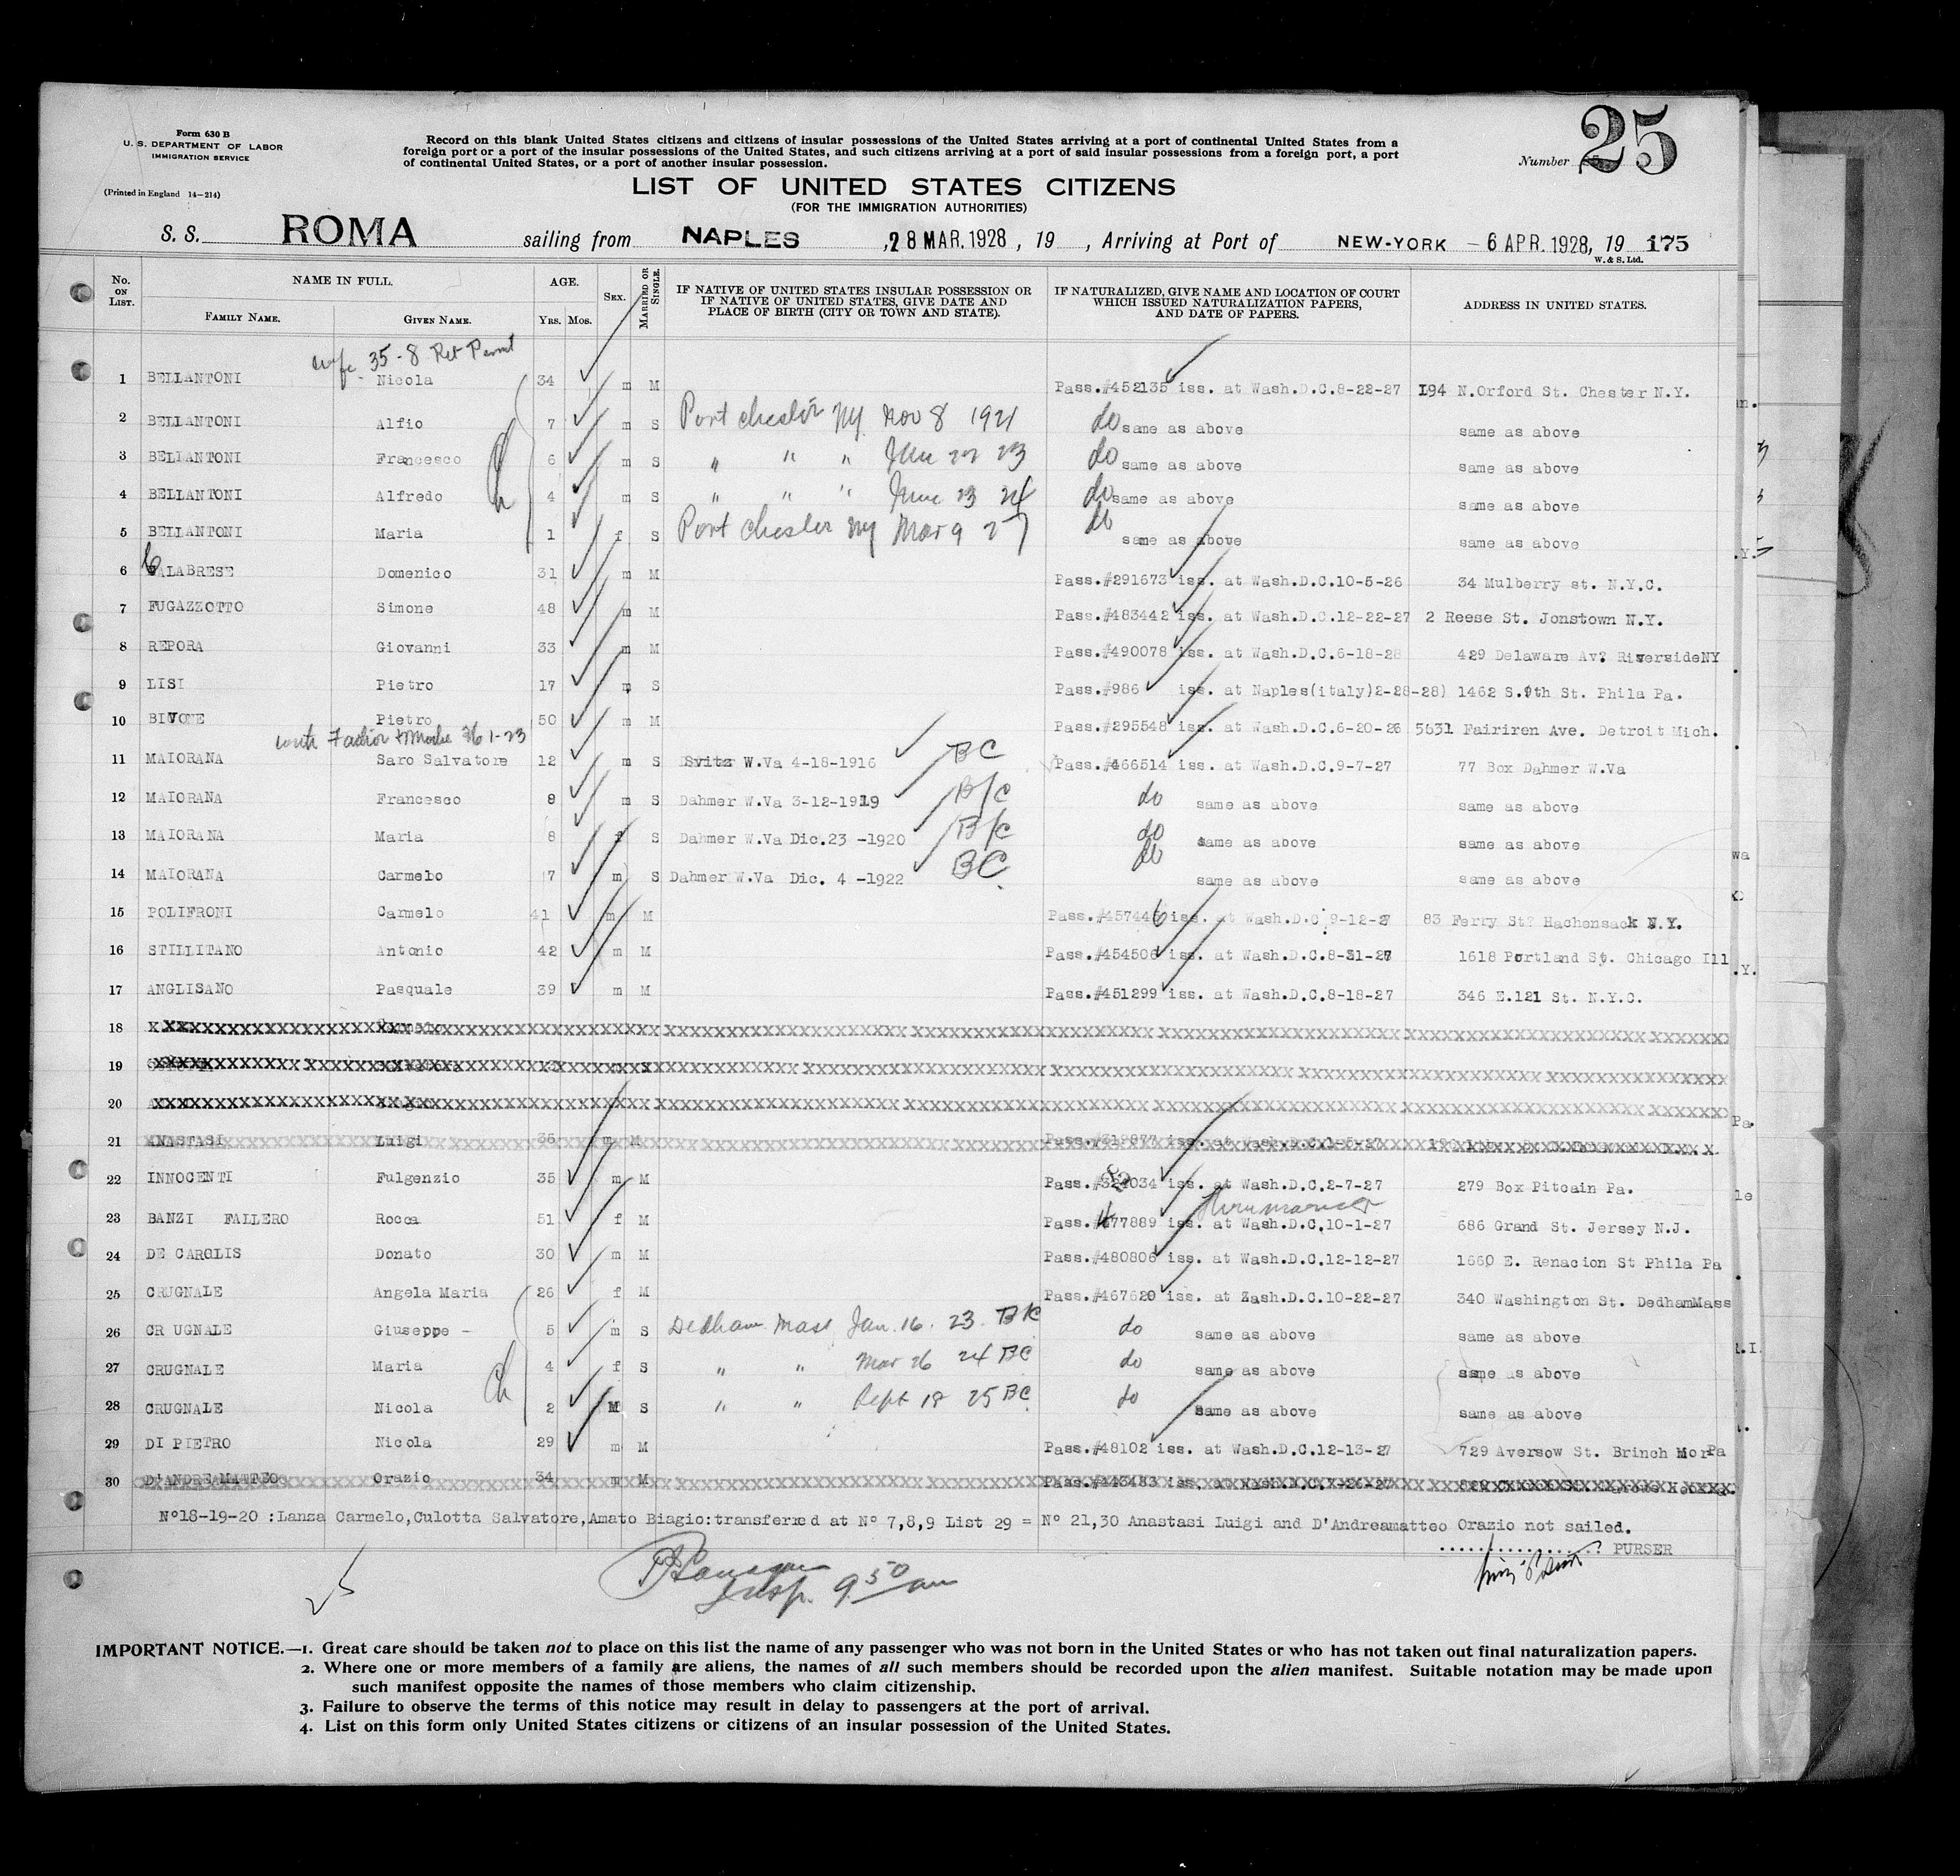 Form 630 B
U. S. DEPARTMENT OF LABOR
IMMIGRATION SERVICE
(Printed in England 14—214)
Record on this blank United States citizens and citizens of insular possessions of the United States arriving at a port of continental United States from a
foreign port or a port of the insular possessions of the United States, and such citizens arriving at a port of said insular possessions from a foreign port, a port
of continental United States, or a port of another insular possession.
Number 25
LIST OF UNITED STATES CITIZENS
(FOR THE IMMIGRATION AUTHORITIES)
S. S. ROMA sailing from NAPLES, 28 MAR. 1928, 19 , Arriving at Port of NEW-YORK - 6 APR. 1928, 19 175
W. & S. Ltd.
No. ON LIST. NAME IN FULL. AGE. SEX. MARRIED OR SINGLE. IF NATIVE OF UNITED STATES INSULAR POSSESSION OR IF NATIVE OF UNITED STATES, GIVE DATE AND PLACE OF BIRTH (CITY OR TOWN AND STATE). IF NATURALIZED, GIVE NAME AND LOCATION OF COURT WHICH ISSUED NATURALIZATION PAPERS, AND DATE OF PAPERS. ADDRESS IN UNITED STATES.
FAMILY NAME. GIVEN NAME. YRS. MOS.
wife 35-8 Ret Permit
1 BELLANTONI Nicola 34 m M Pass.#452135 iss. at Wash.D.C.8-22-27 194 N.Orford St. Chester N.Y.
2 BELLANTONI Alfio 7 m S Port chester Ny Nov 8 1921 do same as above same as above
3 BELLANTONI Francesco 6 m S " " " 22 23 do same as above same as above
4 BELLANTONI Alfredo 4 m S " " " June 23 24 do same as above same as above
5 BELLANTONI Maria 1 f S Port chester Ny Mar 9 27 do same as above same as above
6 CALABRESE Domenico 31 m M Pass.#291673 iss. at Wash.D.C.10-5-26 34 Mulberry st. N.Y.C.
7 FUGAZZOTTO Simone 48 m M Pass.#483442 iss. at Wash.D.C.12-22-27 2 Reese St. Jonstown N.Y.
8 REPORA Giovanni 33 m M Pass.#490078 iss. at Wash.D.C.6-18-28 429 Delaware Av? RiversideNY
9 LISI Pietro 17 m S Pass.#986 iss. at Naples(italy)2-28-28) 1462 S.9th St. Phila Pa.
10 BIVONE Pietro 50 m M Pass.#295548 iss. at Wash.D.C.6-20-26 5631 Fairiren Ave. Detroit Mich.
with Father & Mother 36 1-23
11 MAIORANA Saro Salvatore 12 m S Svitz W.Va 4-18-1916 BC Pass.#466514 iss. at Wash.D.C.9-7-27 77 Box Dahmer W.Va
12 MAIORANA Francesco 8 m S Dahmer W.Va 3-12-1919 B/C do same as above same as above
13 MAIORANA Maria 8 f S Dahmer W.Va Dic.23 -1920 B/C do same as above same as above
14 MAIORANA Carmelo 7 m S Dahmer W.Va Dic. 4 -1922 BC do same as above same as above
15 POLIFRONI Carmelo 41 m M Pass.#457446 iss. at Wash.D.C.9-12-27 83 Ferry St? Hachensack N.Y.
16 STILLITANO Antonio 42 m M Pass.#454506 iss. at Wash.D.C.8-31-27 1618 Portland St. Chicago Ill
17 ANGLISANO Pasquale 39 m M Pass.#451299 iss. at Wash.D.C.8-18-27 346 E.121 St. N.Y.C.
18
19
20
21 ANASTASI Luigi 36 m M Pass.#319877 iss. at Wash.D.C.1-5-27
22 INNOCENTI Fulgenzio 35 m M Pass.#324034 iss. at Wash.D.C.2-7-27 279 Box Pitcain Pa.
23 BANZI FALLERO Rocca 51 f M Pass.#477889 iss. at Wash.D.C.10-1-27 686 Grand St. Jersey N.J.
24 DE CAROLIS Donato 30 m M Pass.#480806 iss. at Wash.D.C.12-12-27 1660 E. Renacion St Phila Pa
25 CRUGNALE Angela Maria 26 f M Pass.#467620 iss. at Zash.D.C.10-22-27 340 Washington St. DedhamMass
26 CR UGNALE Giuseppe - 5 m S Dedham Mass Jan. 16. 23 BC do same as above same as above
27 CRUGNALE Maria 4 f S " " Mar 26 24 BC do same as above same as above
Ch
28 CRUGNALE Nicola 2 M S " " Sept 18 25 BC do same as above same as above
29 DI PIETRO Nicola 29 m M Pass.#48102 iss. at Wash.D.C.12-13-27 729 Aversow St. Brinch MorPa
30 D'ANDREAMATTEO Orazio 34 m M Pass.#443483 iss. at Wash.D.C.7-26-27
N°18-19-20 :Lanza Carmelo,Culotta Salvatore,Amato Biagio:transferred at N° 7,8,9 List 29 = N° 21,30 Anastasi Luigi and D'Andreamatteo Orazio not sailed.
PURSER
Insp. 9 50 am
IMPORTANT NOTICE.—1. Great care should be taken not to place on this list the name of any passenger who was not born in the United States or who has not taken out final naturalization papers.
2. Where one or more members of a family are aliens, the names of all such members should be recorded upon the alien manifest. Suitable notation may be made upon
such manifest opposite the names of those members who claim citizenship.
3. Failure to observe the terms of this notice may result in delay to passengers at the port of arrival.
4. List on this form only United States citizens or citizens of an insular possession of the United States.